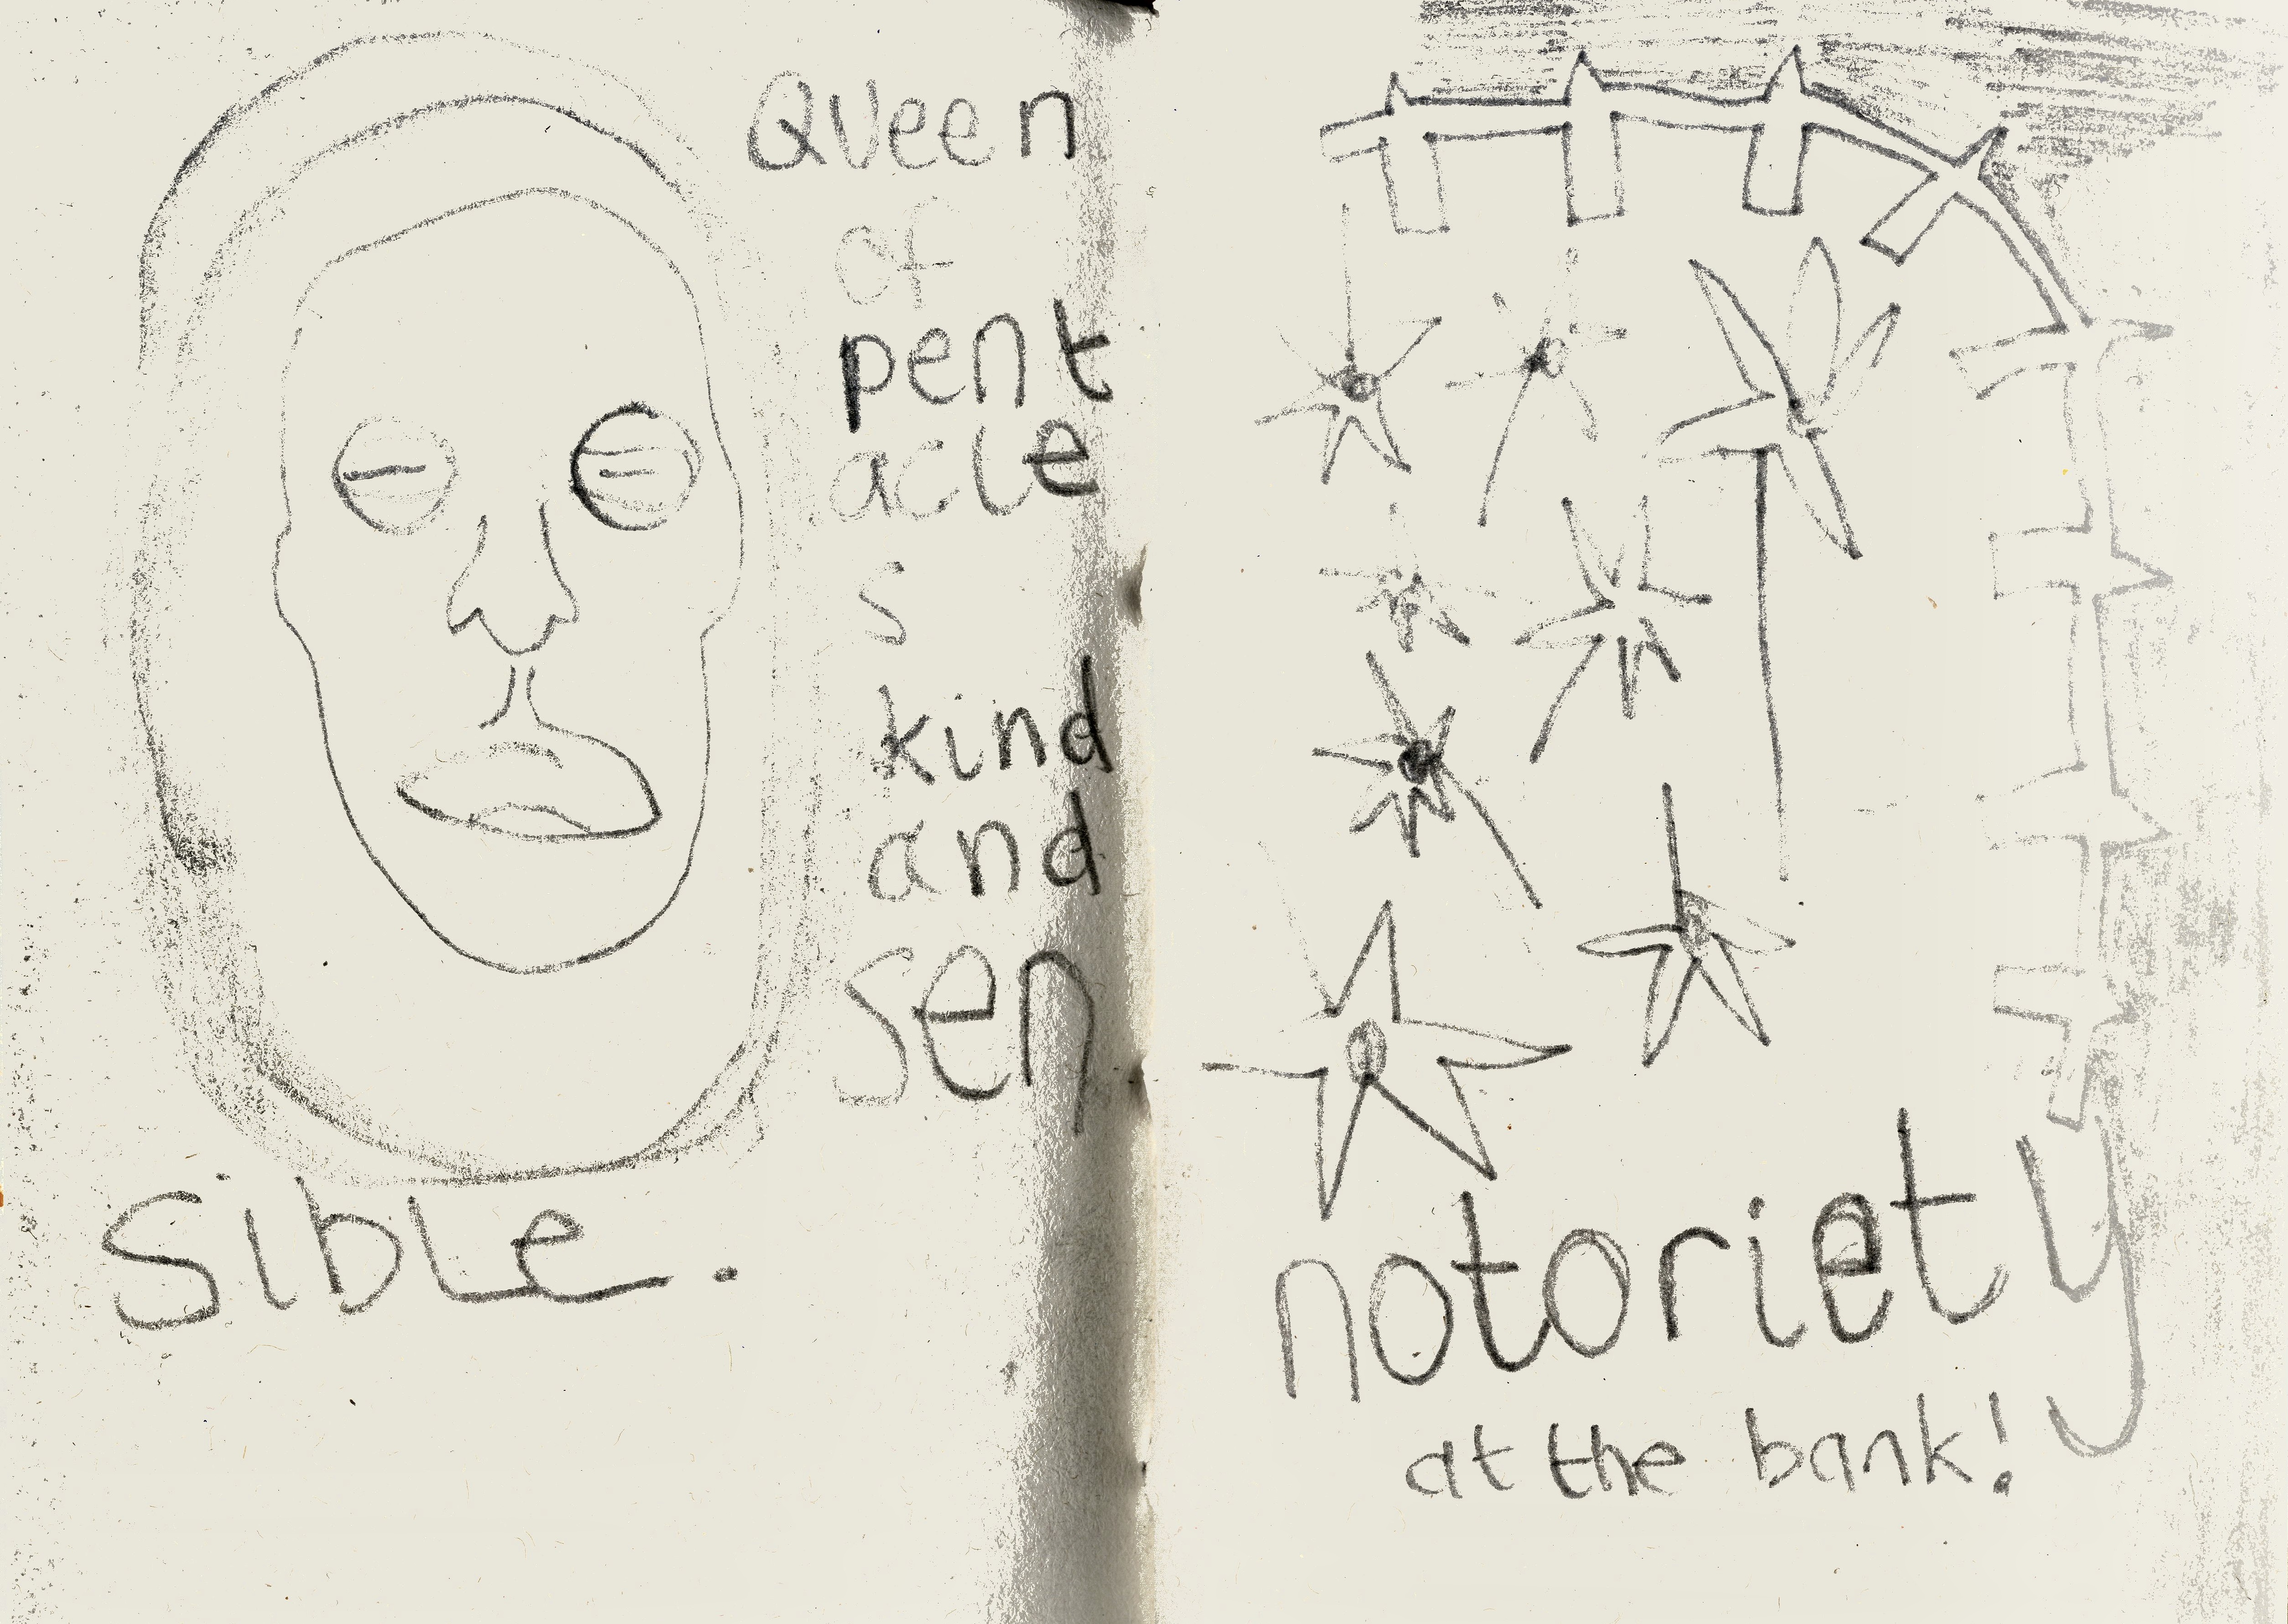 Queen
of
pent
acle
s
kind
and
sen
sible.
notoriety
at the bank!